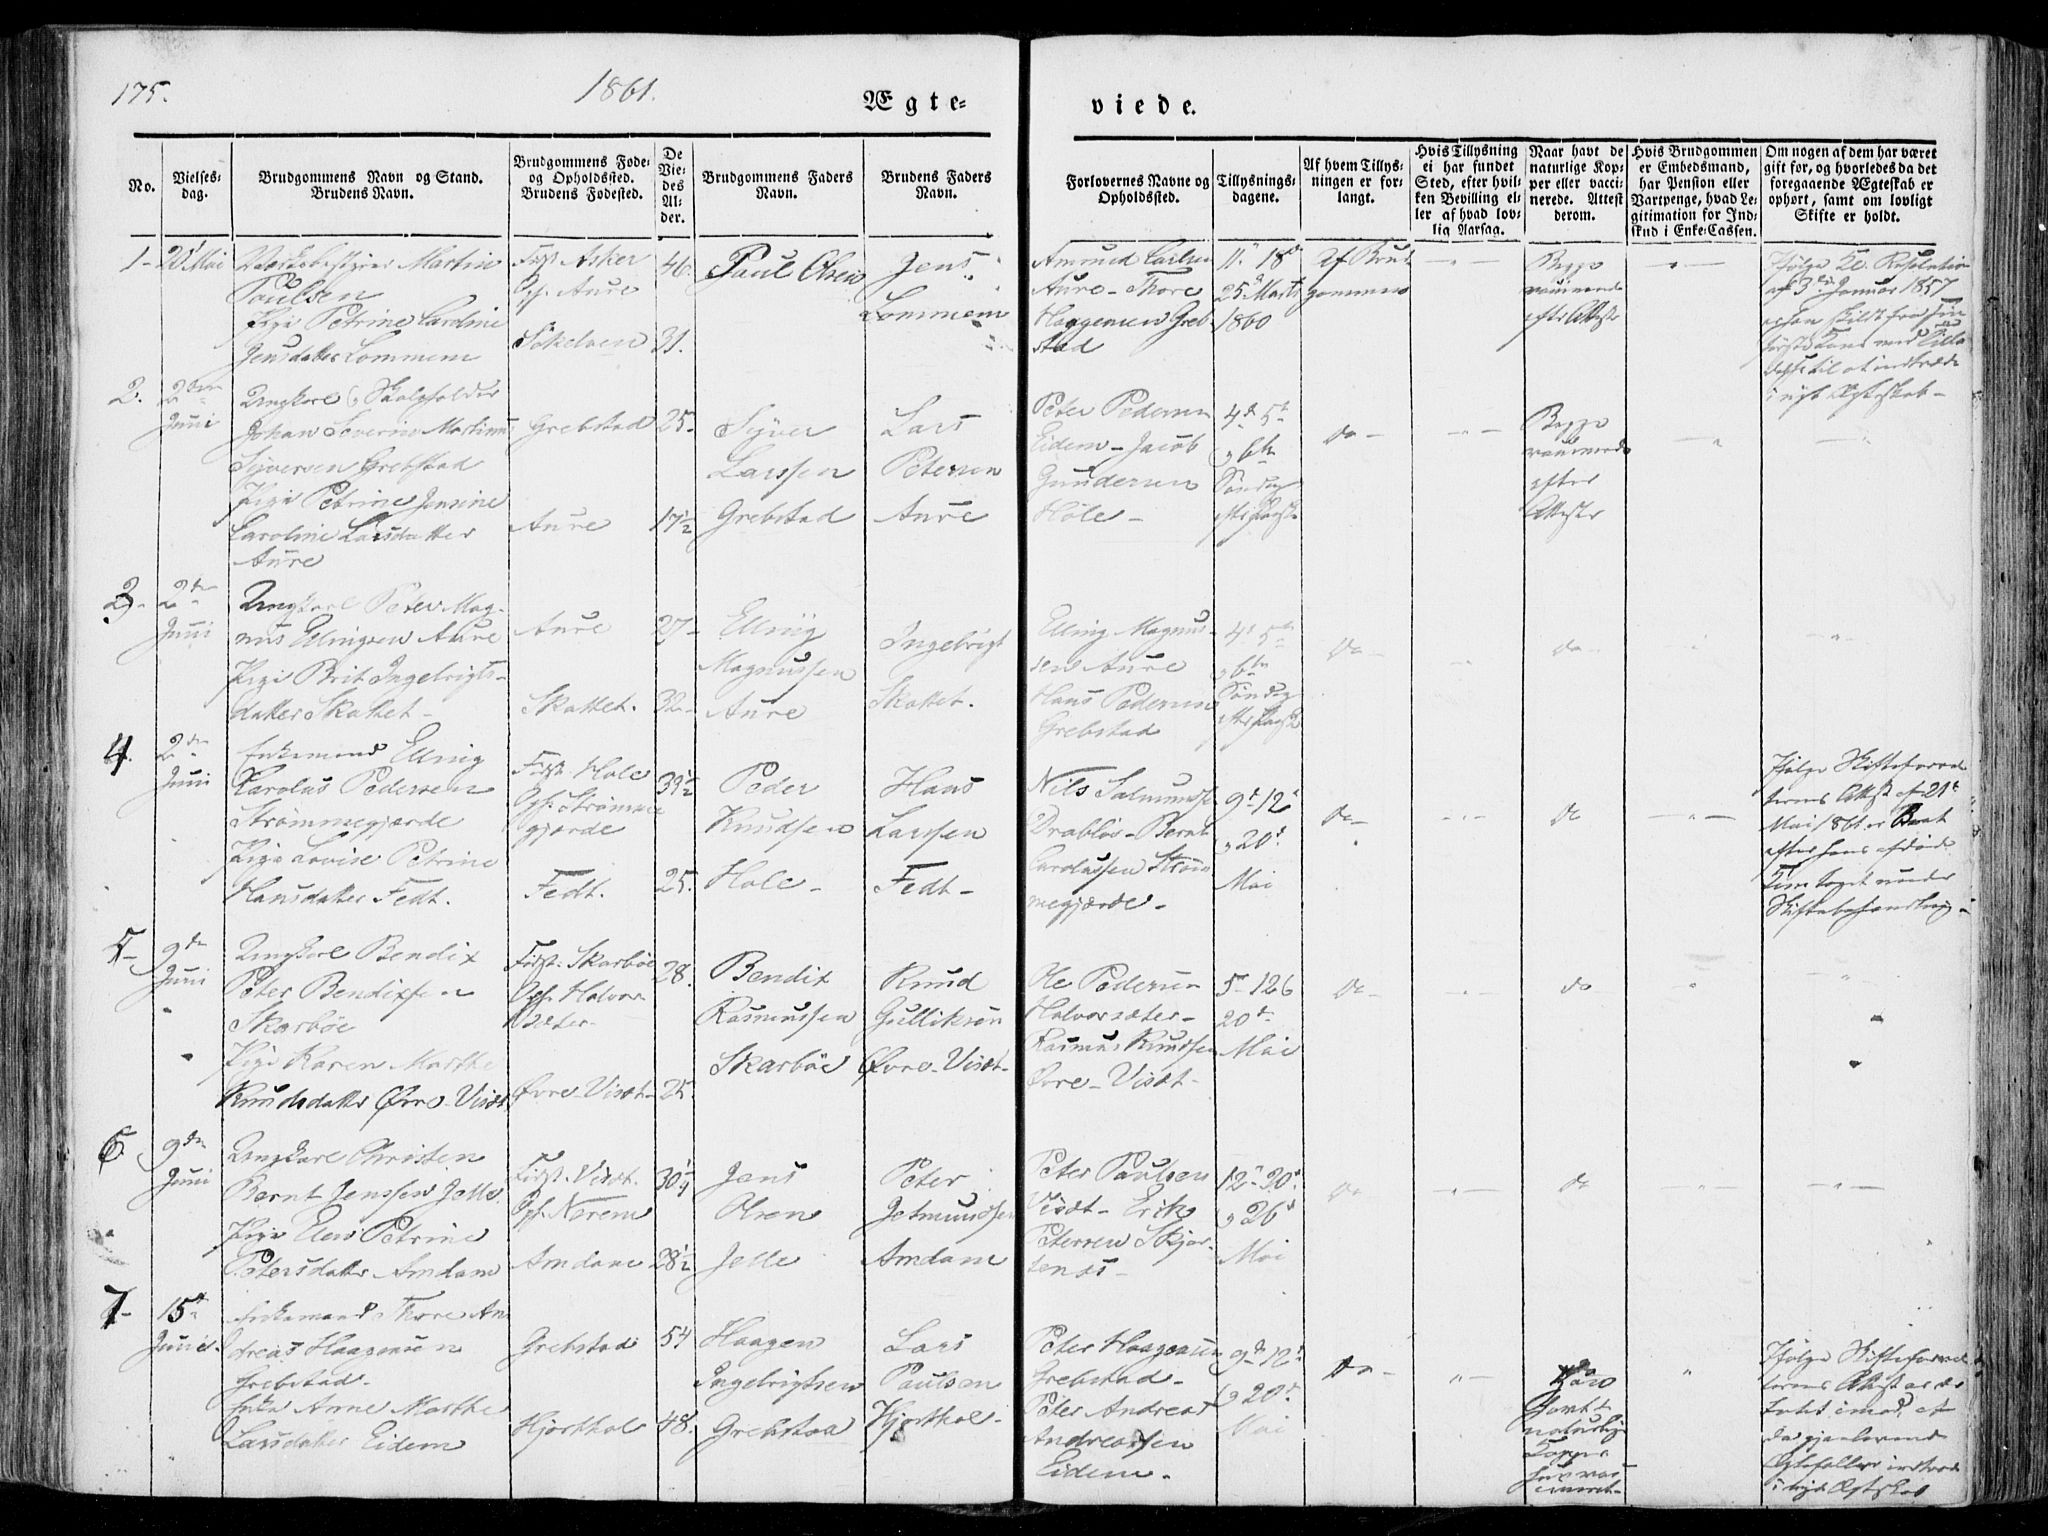 175.
1861.
Ægte-
viede.
No.
Vielses-
dag.
Brudgommens Navn og Stand.
Brudens Navn.
Brudgommens Føde-
og Opholdssted.
Brudens Fødested.
De
Vie-
des
Al-
der.
Brudgommens Faders
Navn.
Brudens Faders
Navn.
Forlovernes Navne og
Opholdssted.
Tillysnings-
dagene.
Af hvem Tillys-
ningen er for-
langt.
Hvis Tillysning
ei har fundet
Sted, efter hvil-
ken Bevilling el-
ler af hvad lov-
lig Aarsag.
Naar havt de
naturlige Kop-
per eller vacci-
nerede. Attest
derom.
Hvis Brudgommen
er Embedsmand,
har Pension eller
Vartpenge, hvad Le-
gitimation for Ind-
skud i Enke-Cassen.
Om nogen af dem har været
gift før, og hvorledes da det
foregaaende Ægteskab er
ophørt, samt om lovligt
Skifte er holdt.
1-
Mai
Martin
Paulsen
Pige Petrine Caroline
Jensdatter Lommem
Født Asker
Opf. Aure
Sökelven
46.
31.
Paul Olsen
Jens
Lommem
Amund Carlsen
Aure - Thore
Haagensen Greb-
stad
11te 18de
25de Marts
1860
Af Brud-
gommen
Begge
vaccinerede
efter Attester
Ifølge Kl. Resolution
af 3die Januar 1857
er han skildt fra sin
første Kone med Tilla-
delse til at indtræde
i nyt Ægteskab -
2.
2den
Juni
Ungkarl Skoleholder
Johan Severin Martinus
Syversen Grebstad
Pige Petrine Jensine
Caroline Larsdatter
Aure
Grebstad
Aure
25-
17½
Syver
Larssen
Grebstad
Lars
Petersen
Aure
Peter Pedersen
Eidem - Jacob
Gundersen
Hole -
4de 5te
og 6te
Søndag
efter Paaske
do -
Begge
vaccinerede
efter
Attester
3-
2den
Juni
Ungkarl Peter Mag-
nus Ellingsen Aure
Pige Brit Ingebrigts-
datter Skottet -
Aure
Skottet.
27-
32-
Elling
Magnussen
Aure
Ingebrigt
Skottet.
Elling Magnus-
sen Aure
Hans Pedersen
Grebstad
4de 5te
og 6te
Søndag
efter Paaske
do -
do -
4.
2den
Juni
Enkemand Elling
Karolus Pedersen
Strømmegjærde
Pige Lovise Petrine
Hansdatter Fedt.
Født Hole
Opf. Strømme-
gjærde
Fedt.
39½
25.
Peder
Knudsen
Hole -
Hans
Larssen
Fedt -
Nils Salmundsen
Drabløs - Bernt
Carolussen Strøm-
megjærde -
9de 12te
og 20de
Mai
do -
do
Ifølge Skifteforval-
terens Attest af 21de
Mai 1861 er Boet
efter hans afdøde
Kone taget under
Skiftebehandling -
5-
9de
Juni
Ungkarl Bendix
Peter Bendixsen
Skarbøe
Pige Karen Marthe
Knudsdatter Øvre-Visæt
Født. Skarbøe
Opf. Halvor-
sæter -
Øvre-Visæt -
28.
25
Bendix
Rasmussen
Skarbøe
Knud
Gulliksøn
Øvre-Visæt -
Ole Pedersen
Halvorsæter -
Rasmus Knudsen
Øvre-Visæt -
5te 12te
20de
Mai
do -
do
6.
9de
Juni
Ungkarl Christen
Bernt Jenssen Jelle
Pige Elen Petrine
Petersdatter Amdam
Født. Visæt.
Opf. Norem
Amdam
30¼
28½
Jens
Olsen
Jelle
Peter
Jetmundsen
Amdam
Peter Paulsen
Visæt - Erik
Petersen Skjor-
tenæs -
12te 20de
og 26de
Mai
do
do
7-
15de
Juni.
Enkemand Thore An-
dreas Haagensen
Grebstad -
Enke Anne Marthe
Larsdatter Eidem
Grebstad
Hjorthol
54
48.
Haagen
Ingebrigtsen
Grebstad
Lars
Paulsen
Hjorthol -
Peter Haagensen
Grebstad -
Peter Andreas
Andreassen
Eidem -
9de 12te
og 20de
Mai
do -
havt
naturlige
Kopper
hun vac-
cineret -
Ifølge Skifteforval-
terens Attest er der
Intet imod, at
de gjenlevende
Ægtefæller indtræde
i nyt Ægteskab